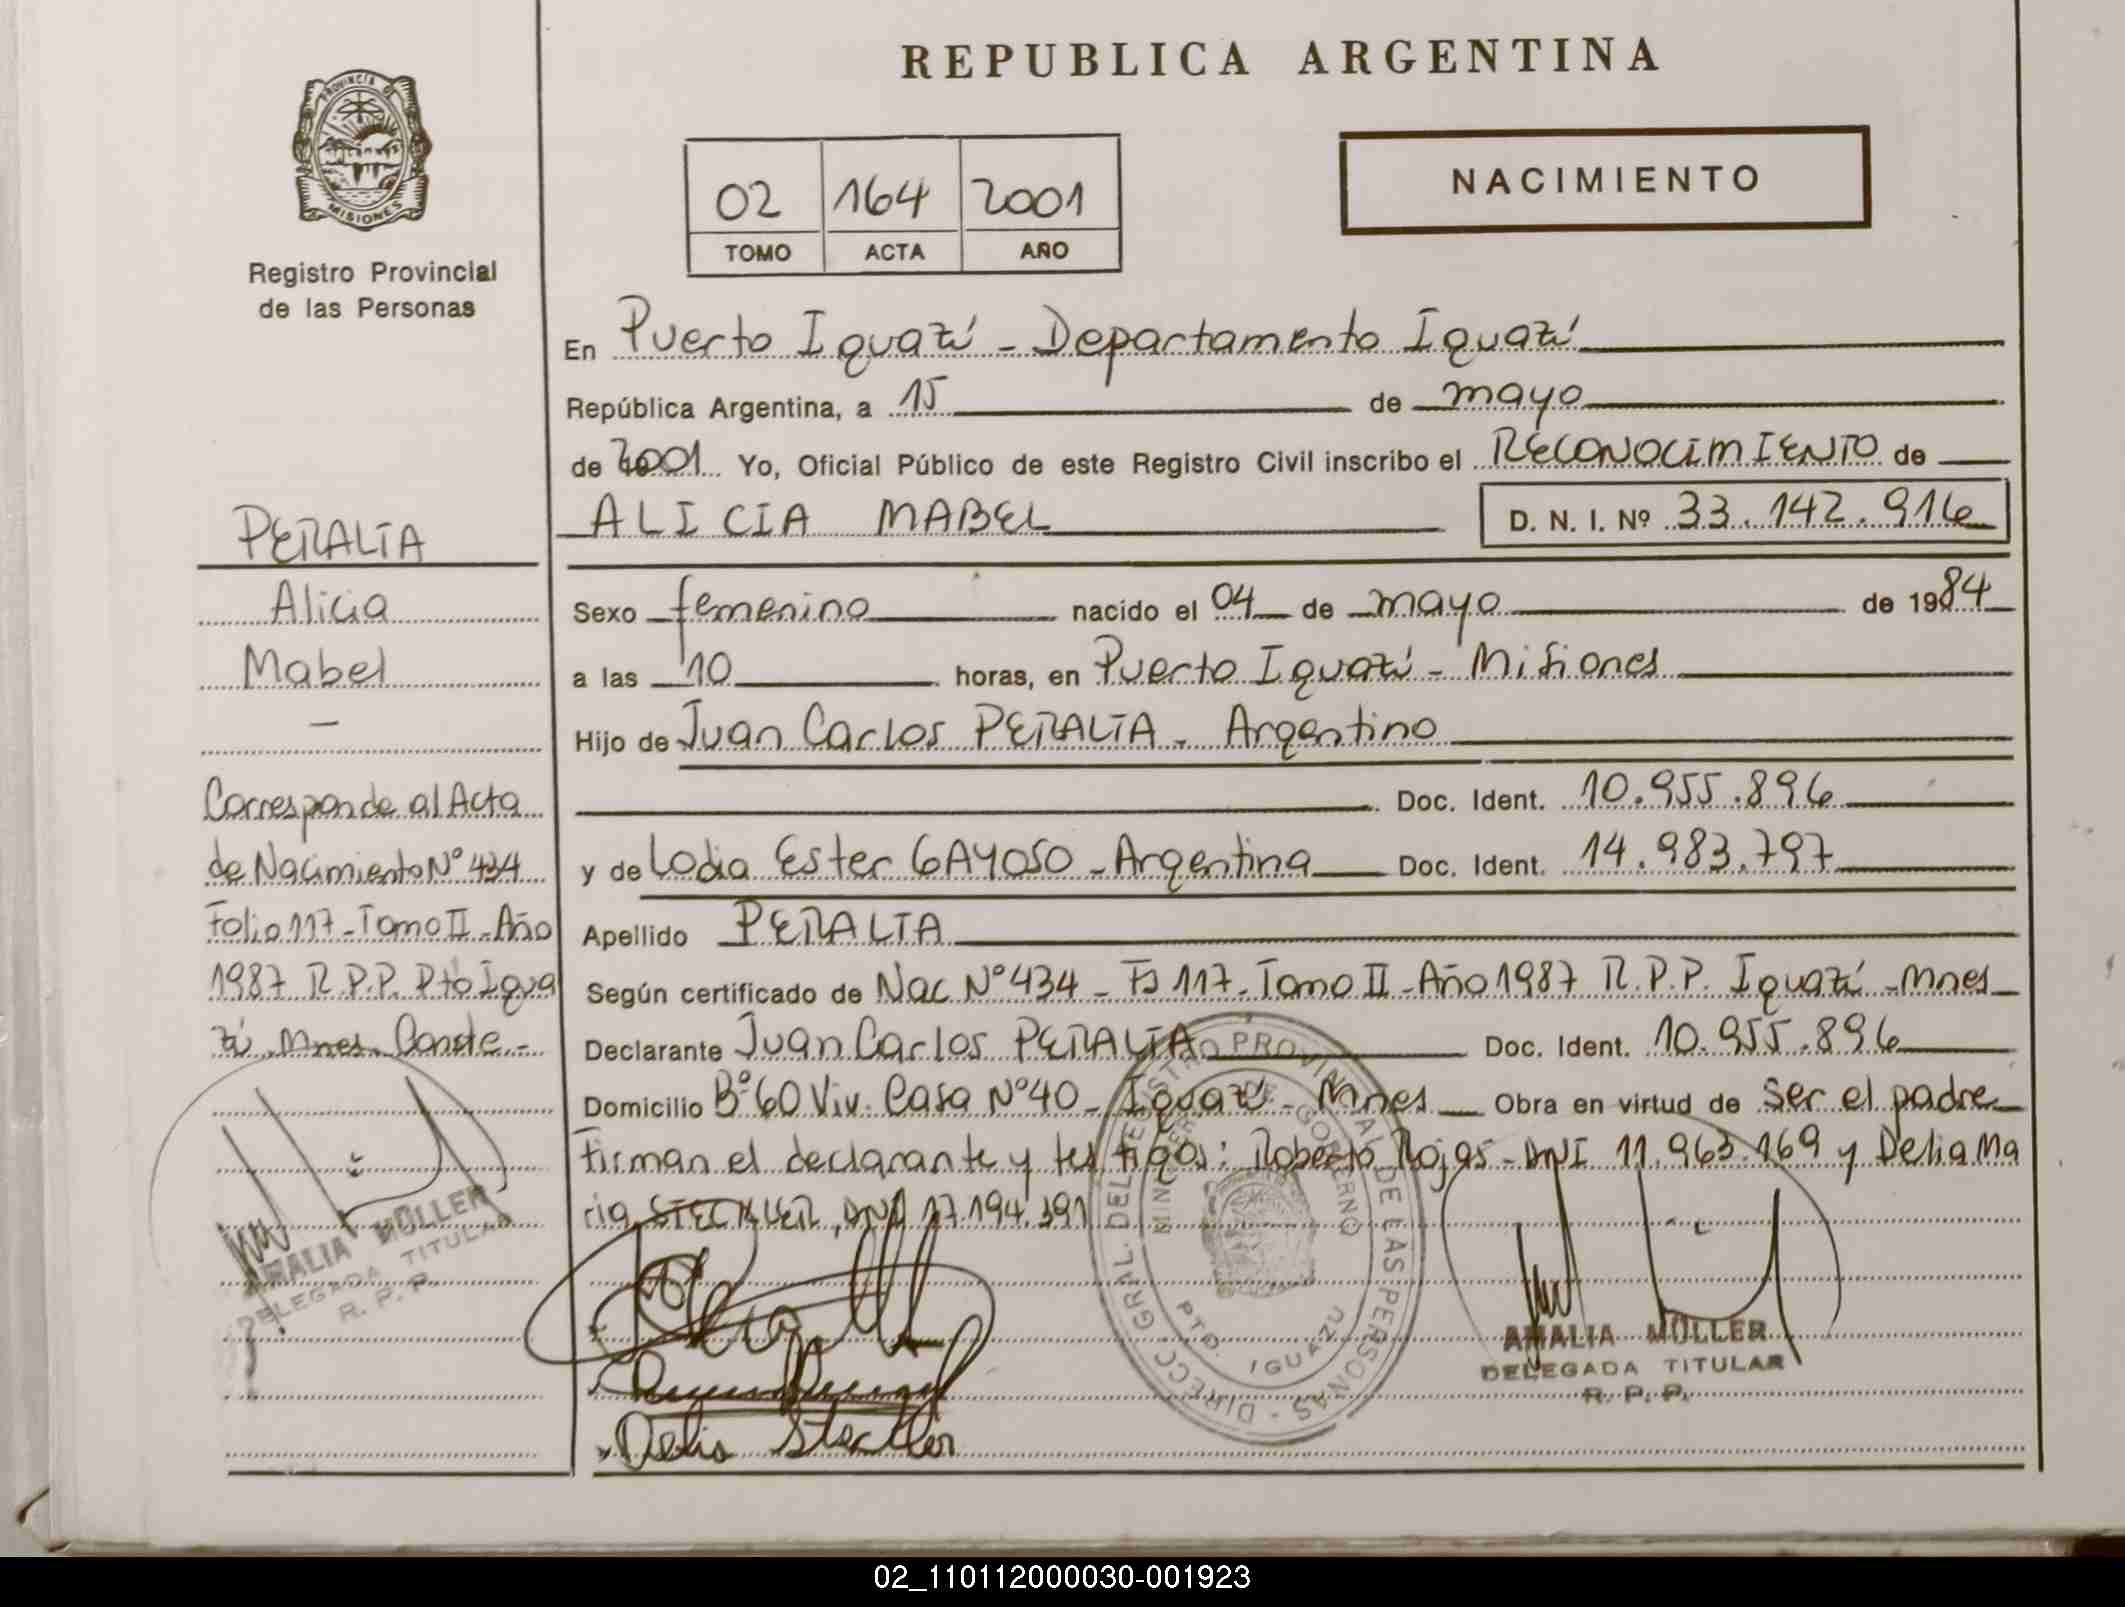 REPUBLICA ARGENTINA
PROVINCIA DE
MISIONES
Registro Provincial
de las Personas
02 164 2001
TOMO ACTA AÑO
NACIMIENTO
En Puerto Iguazú - Departamento Iguazú
República Argentina, a 15 de mayo
de 2001 Yo, Oficial Público de este Registro Civil inscribo el RECONOCIMIENTO de
ALICIA MABEL D. N. I. Nº 33.142.916
PERALTA
Alicia
Mabel
-
Corresponde al Acta
de Nacimiento Nº 434
Folio 117 - Tomo II - Año
1987 R.P.P. Pto Igua
zú Mnes. Conste -
Sexo femenino nacido el 04 de mayo de 1984
a las 10 horas, en Puerto Iguazú - Misiones
Hijo de Juan Carlos PERALTA - Argentino
Doc. Ident. 10.955.896
y de Lodia Ester GAYOSO - Argentina Doc. Ident. 14.983.797
Apellido PERALTA
Según certificado de Nac Nº 434 - Fº 117 - Tomo II - Año 1987 R.P.P. Iguazú - Mnes
Declarante Juan Carlos PERALTA Doc. Ident. 10.955.896
Domicilio Bº 60 Viv. Casa Nº 40 - Iguazú - Mnes Obra en virtud de ser el padre
Firman el declarante y testigos: Roberto Rojas - DNI 11.963.169 y Delia Ma
ria STECKLER, DNI 17.194.391
AMALIA MÜLLER
DELEGADA TITULAR
R. P. P.
DIRECC. GRAL. DEL REGISTRO PROVINCIAL DE LAS PERSONAS
MINISTERIO DE GOBIERNO
PTO. IGUAZU
AMALIA MÜLLER
DELEGADA TITULAR
R. P. P.
Delia Steckler
02_110112000030-001923